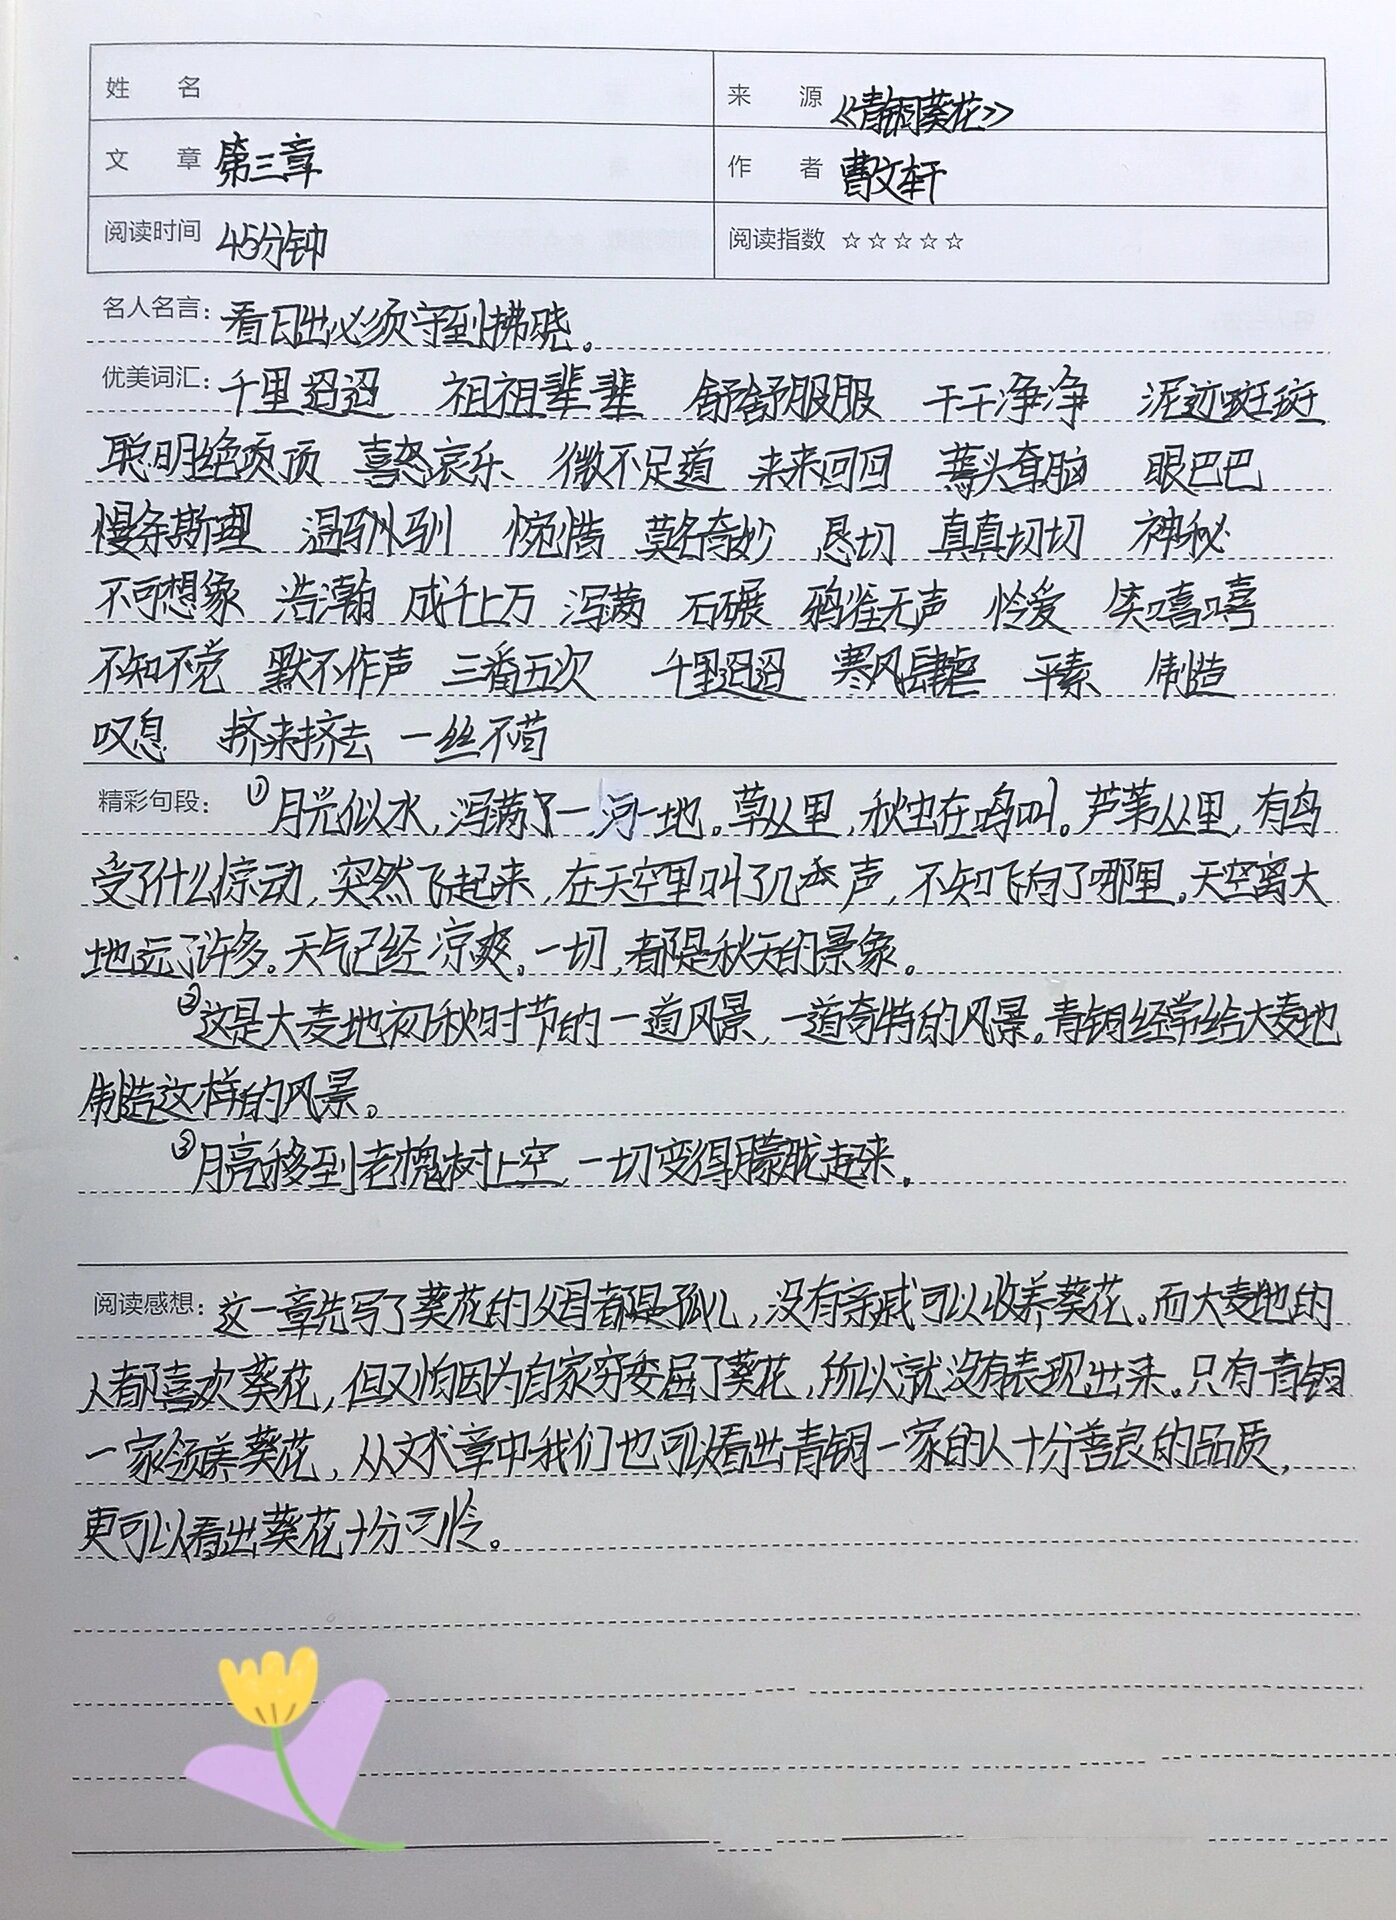 姓 名
来 源 《青铜葵花》
文 章 第三章
作 者 曹文轩
阅读时间 45分钟
阅读指数 ☆☆☆☆☆
名人名言：看日出必须守到拂晓。
优美词汇：千里迢迢 祖祖辈辈 舒舒服服 干干净净 泥迹斑斑
聪明绝顶顶 喜怒哀乐 微不足道 来来回回 蔫头耷脑 眼巴巴
慢条斯理 温驯驯 惋惜 莫名奇妙 恳切 真真切切 神秘
不可想象 浩瀚 成千上万 泻满 石碾 鸦雀无声 怜爱 笑嘻嘻
不知不觉 默不作声 三番五次 千里迢迢 寒风肆虐 平素 制造
叹息 挤来挤去 一丝不苟
精彩句段：①月光似水，泻满了一河一地。草丛里，秋虫在鸣叫。芦苇丛里，有鸟
受了什么惊动，突然飞起来，在天空里叫了几声，不知飞向了哪里。天空离大
地远了许多。天气已经凉爽。一切，都是秋天的景象。
②这是大麦地初秋时节的一道风景，一道奇特的风景。青铜经常给大麦地
制造这样的风景。
③月亮移到老槐树上空，一切变得朦胧起来。
阅读感想：这一章先写了葵花的父母都是孤儿，没有亲戚可以收养葵花。而大麦地的
人都喜欢葵花，但又怕因为自家穷委屈了葵花，所以就没有表现出来。只有青铜
一家领养葵花，从文章中我们也可以看出青铜一家的人十分善良的品质，
更可以看出葵花十分可怜。